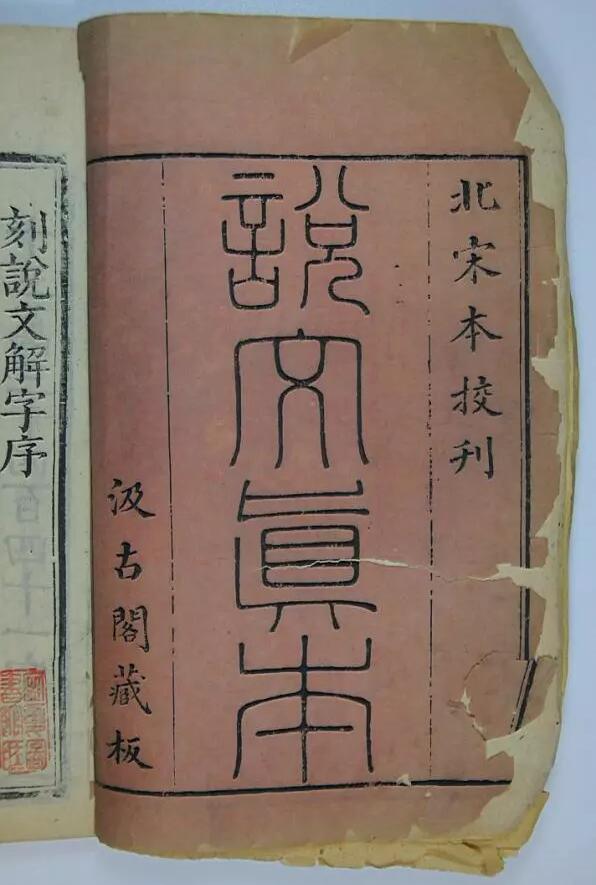 北宋本挍刋
說文眞本
汲古閣藏板
刻說文解字序